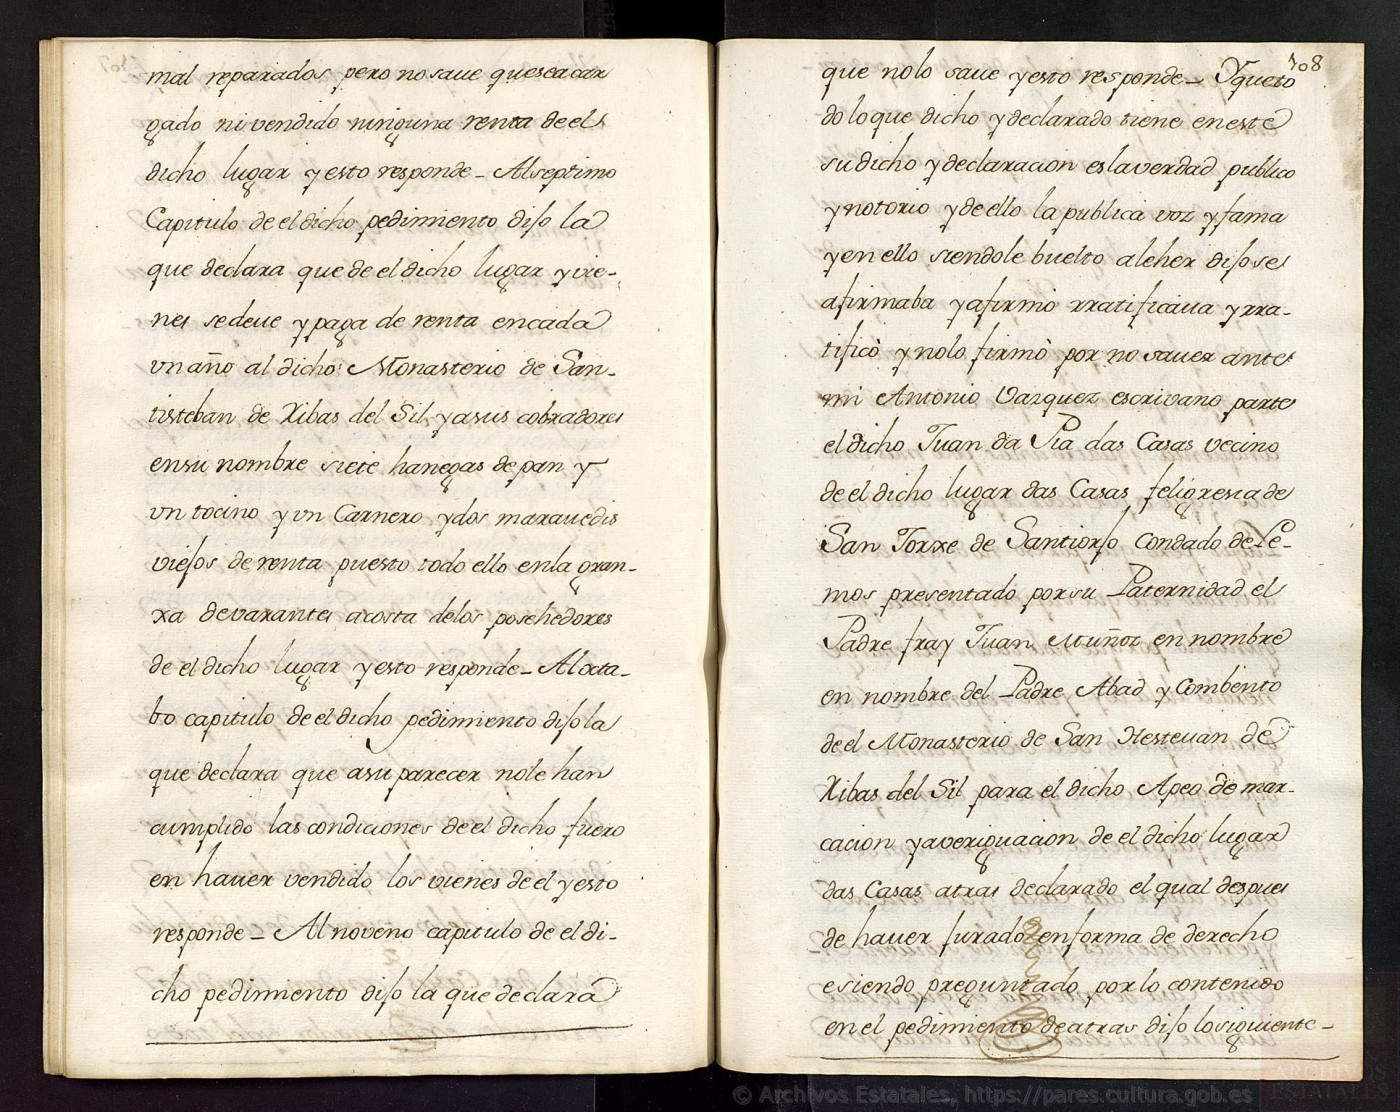 mal reparados pero no saue que sea car
gado ni vendido ninguna renta de el
dicho lugar y esto responde – Al septimo
Capitulo de el dicho pedimiento dijo la
que declara que de el dicho lugar y vie-
nes se deue y paga de renta en cada
vn año al dicho Monasterio de San-
tisteban de Ribas del Sil y a sus cobradores
en su nombre siete hanegas de pan y
vn tocino y vn Carnero y dos marauedis
viejos de renta puesto todo ello en la gran-
xa de varantes a costa de los posehedores
de el dicho lugar y esto responde – Al octa-
bo capitulo de el dicho pedimiento dijo la
que declara que a su parecer no le han
cumplido las condiciones de el dicho fuero
en hauer vendido los vienes de el y esto
responde – Al noveno capitulo de el di-
cho pedimiento dijo la que declara
108
que no lo saue y esto responde – Y que to
do lo que dicho y declarado tiene en este
su dicho y declaracion es la verdad publico
y notorio y de ello la publica voz y fama
y en ello siendole buelto a leher dijo se
afirmaba y afirmò rratificaua y rra-
tificò y no lo firmò por no sauer ante
mi Antonio Vazquez escrivano parte
el dicho Juan da Pia das Casas vecino
de el dicho lugar das Casas feligresia de
San Jorxe de Santiorjo Condado de Le-
mos presentado por su Paternidad el
Padre fray Juan Muñoz en nombre
en nombre del Padre Abad y Combento
de el Monasterio de San Hesteuan de
Ribas del Sil para el dicho Apeo de mar-
cacion y averiguacion de el dicho lugar
das Casas atras declarado el qual despues
de hauer jurado en forma de derecho
e siendo preguntado por lo contenido
en el pedimiento de atras dijo lo siguiente –
© Archivos Estatales, https://pares.cultura.gob.es
ARCHIVOS
ESTATALES